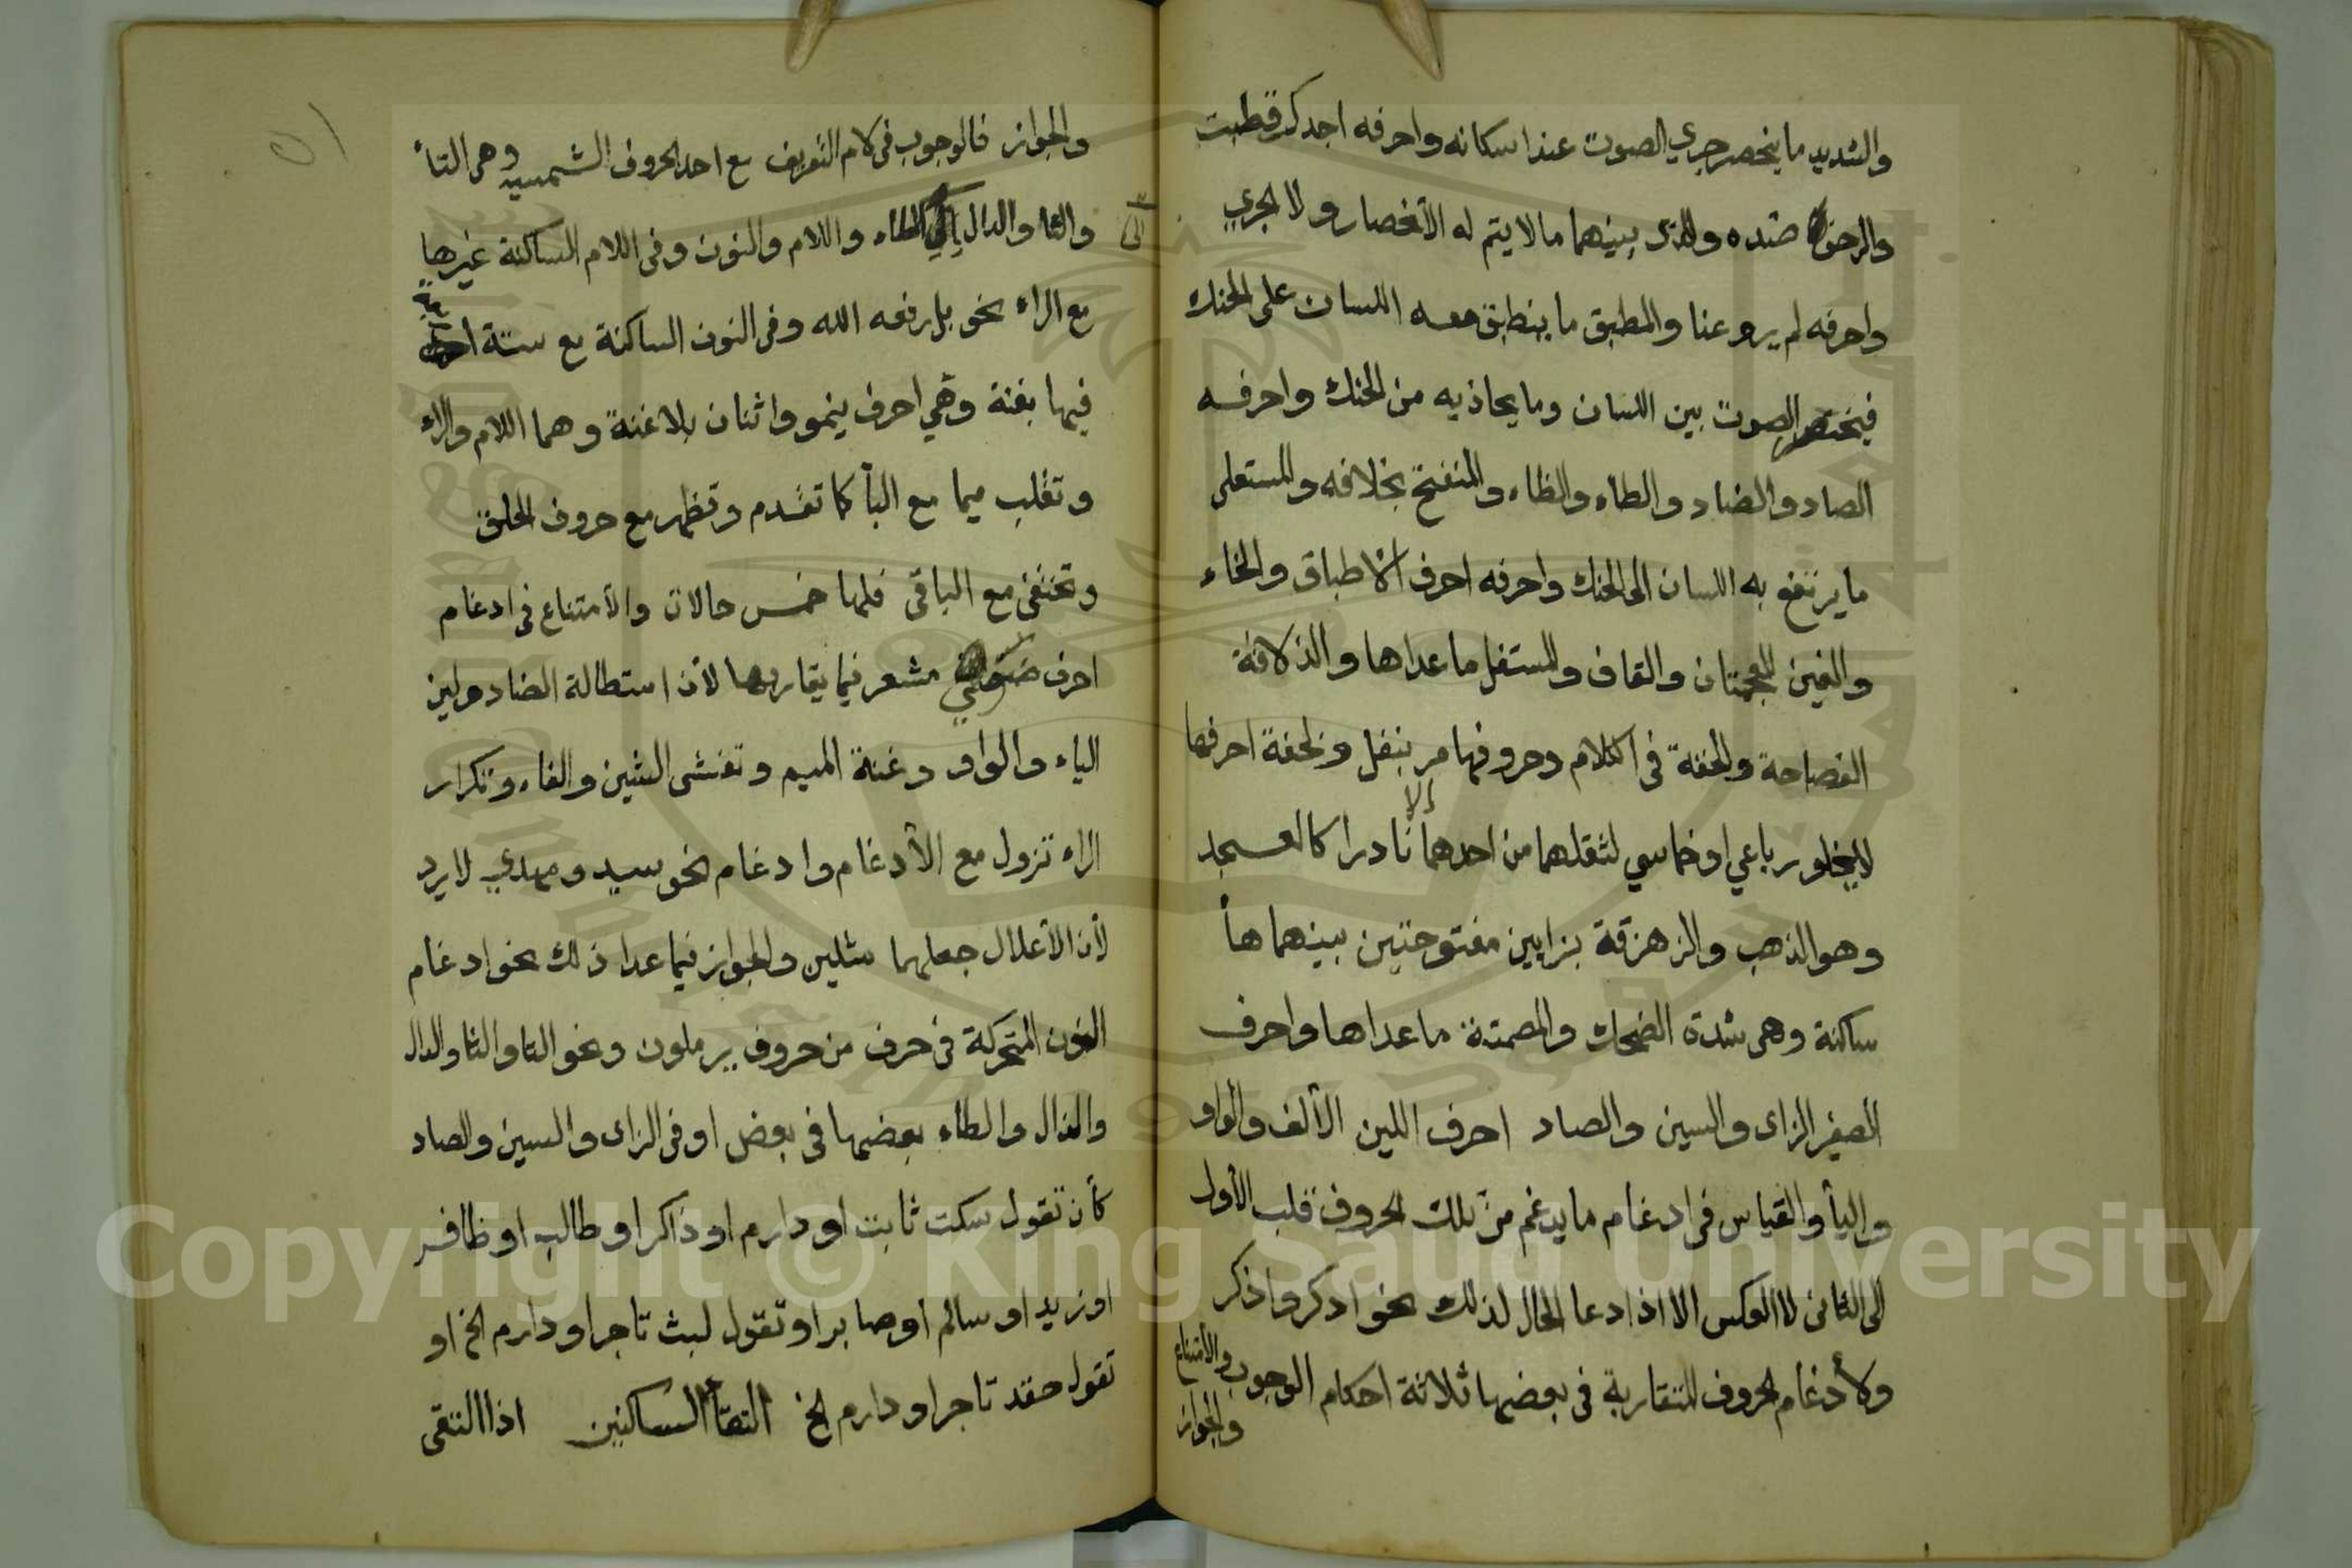 والشديد ما ينحصر جري الصوت عند اسكانه واحرفه اجدك قطبت
والرخو ضده والذى بينهما ما لا يتم له الأنحصار ولا الجري
واحرفه لم يروعنا والمطبق ما ينطبق معه اللسان على الحنك
فينحصر الصوت بين اللسان وما يحاذيه من الحنك واحرفه
الصاد والضاد والطاء والظاء والمنفتح بخلافه والمستعلى
ما يرتفع به اللسان الى الحنك واحرفه احرف الأطباق والخاء
والغين المعجمتان والقاف والمستفل ما عداها والذلاقة
الفصاحة والخفة فى الكلام وحروفها مر بنفل ولخفة احرفها
لايخلو رباعي او خماسي لثقلهما من احدهما إلا نادرا كالعسجد
وهو الذهب والزهزقة بزايين مفتوحتين بينهما هأ
ساكنة وهى شدة الضحك والمصمتة ما عداها واحرف
الصفير الزاى والسين والصاد احرف اللين الألف والواو
واليأ والقياس فى ادغام ما يدغم من تلك الحروف قلب الأول
الى الثانى لا العكس الا اذا دعا الحال لذلك نحو ادكر واذكر
ولأدغام الحروف المتقاربة فى بعضها ثلاثة احكام الوجوب والأمتناع
والجواز
والجواز فالوجوب فى لام التعريف مع احد الحروف الشمسيه وهى التأ
والثا والدال الى الظاء واللام والنون وفى اللام الساكنة غيرها
الى
مع الراء نحو بل رفعه الله وفى النون الساكنة مع ستة
فيها بغنة وهي احرف ينمو واثنان بلا غنة وهما اللام والراء
وتقلب ميما مع البأ كما تقدم وتظهر مع حروف الحلق
وتختفى مع الباقى فلها خمس حالات والأمتناع فى ادغام
احرف ضوي مشفر فيما يقاربها لأن استطالة الضاد ولين
الياء والواو وغنة الميم وتفشى الشين والفاء وتكرار
الراء تزول مع الأدغام وادغام نحو سيد ومهدي لا يرد
لأن الأعلال جعلهما مثلين والجواز فيما عدا ذلك نحو ادغام
النون المتحركة فى حرف من حروف يرملون ونحو التا والثا والدال
والذال والطاء بعضها فى بعض او فى الزاى والسين والصاد
كأن تقول سكت ثابت او دارم او ذاكر او طالب او ظافر
او زيد او سالم او صابر او تقول لبث تاجر او دارم الخ او
تقول حقد تاجر او دارم الخ التقأ الساكنين اذا التقى
١٥
Copyright © King Saud University